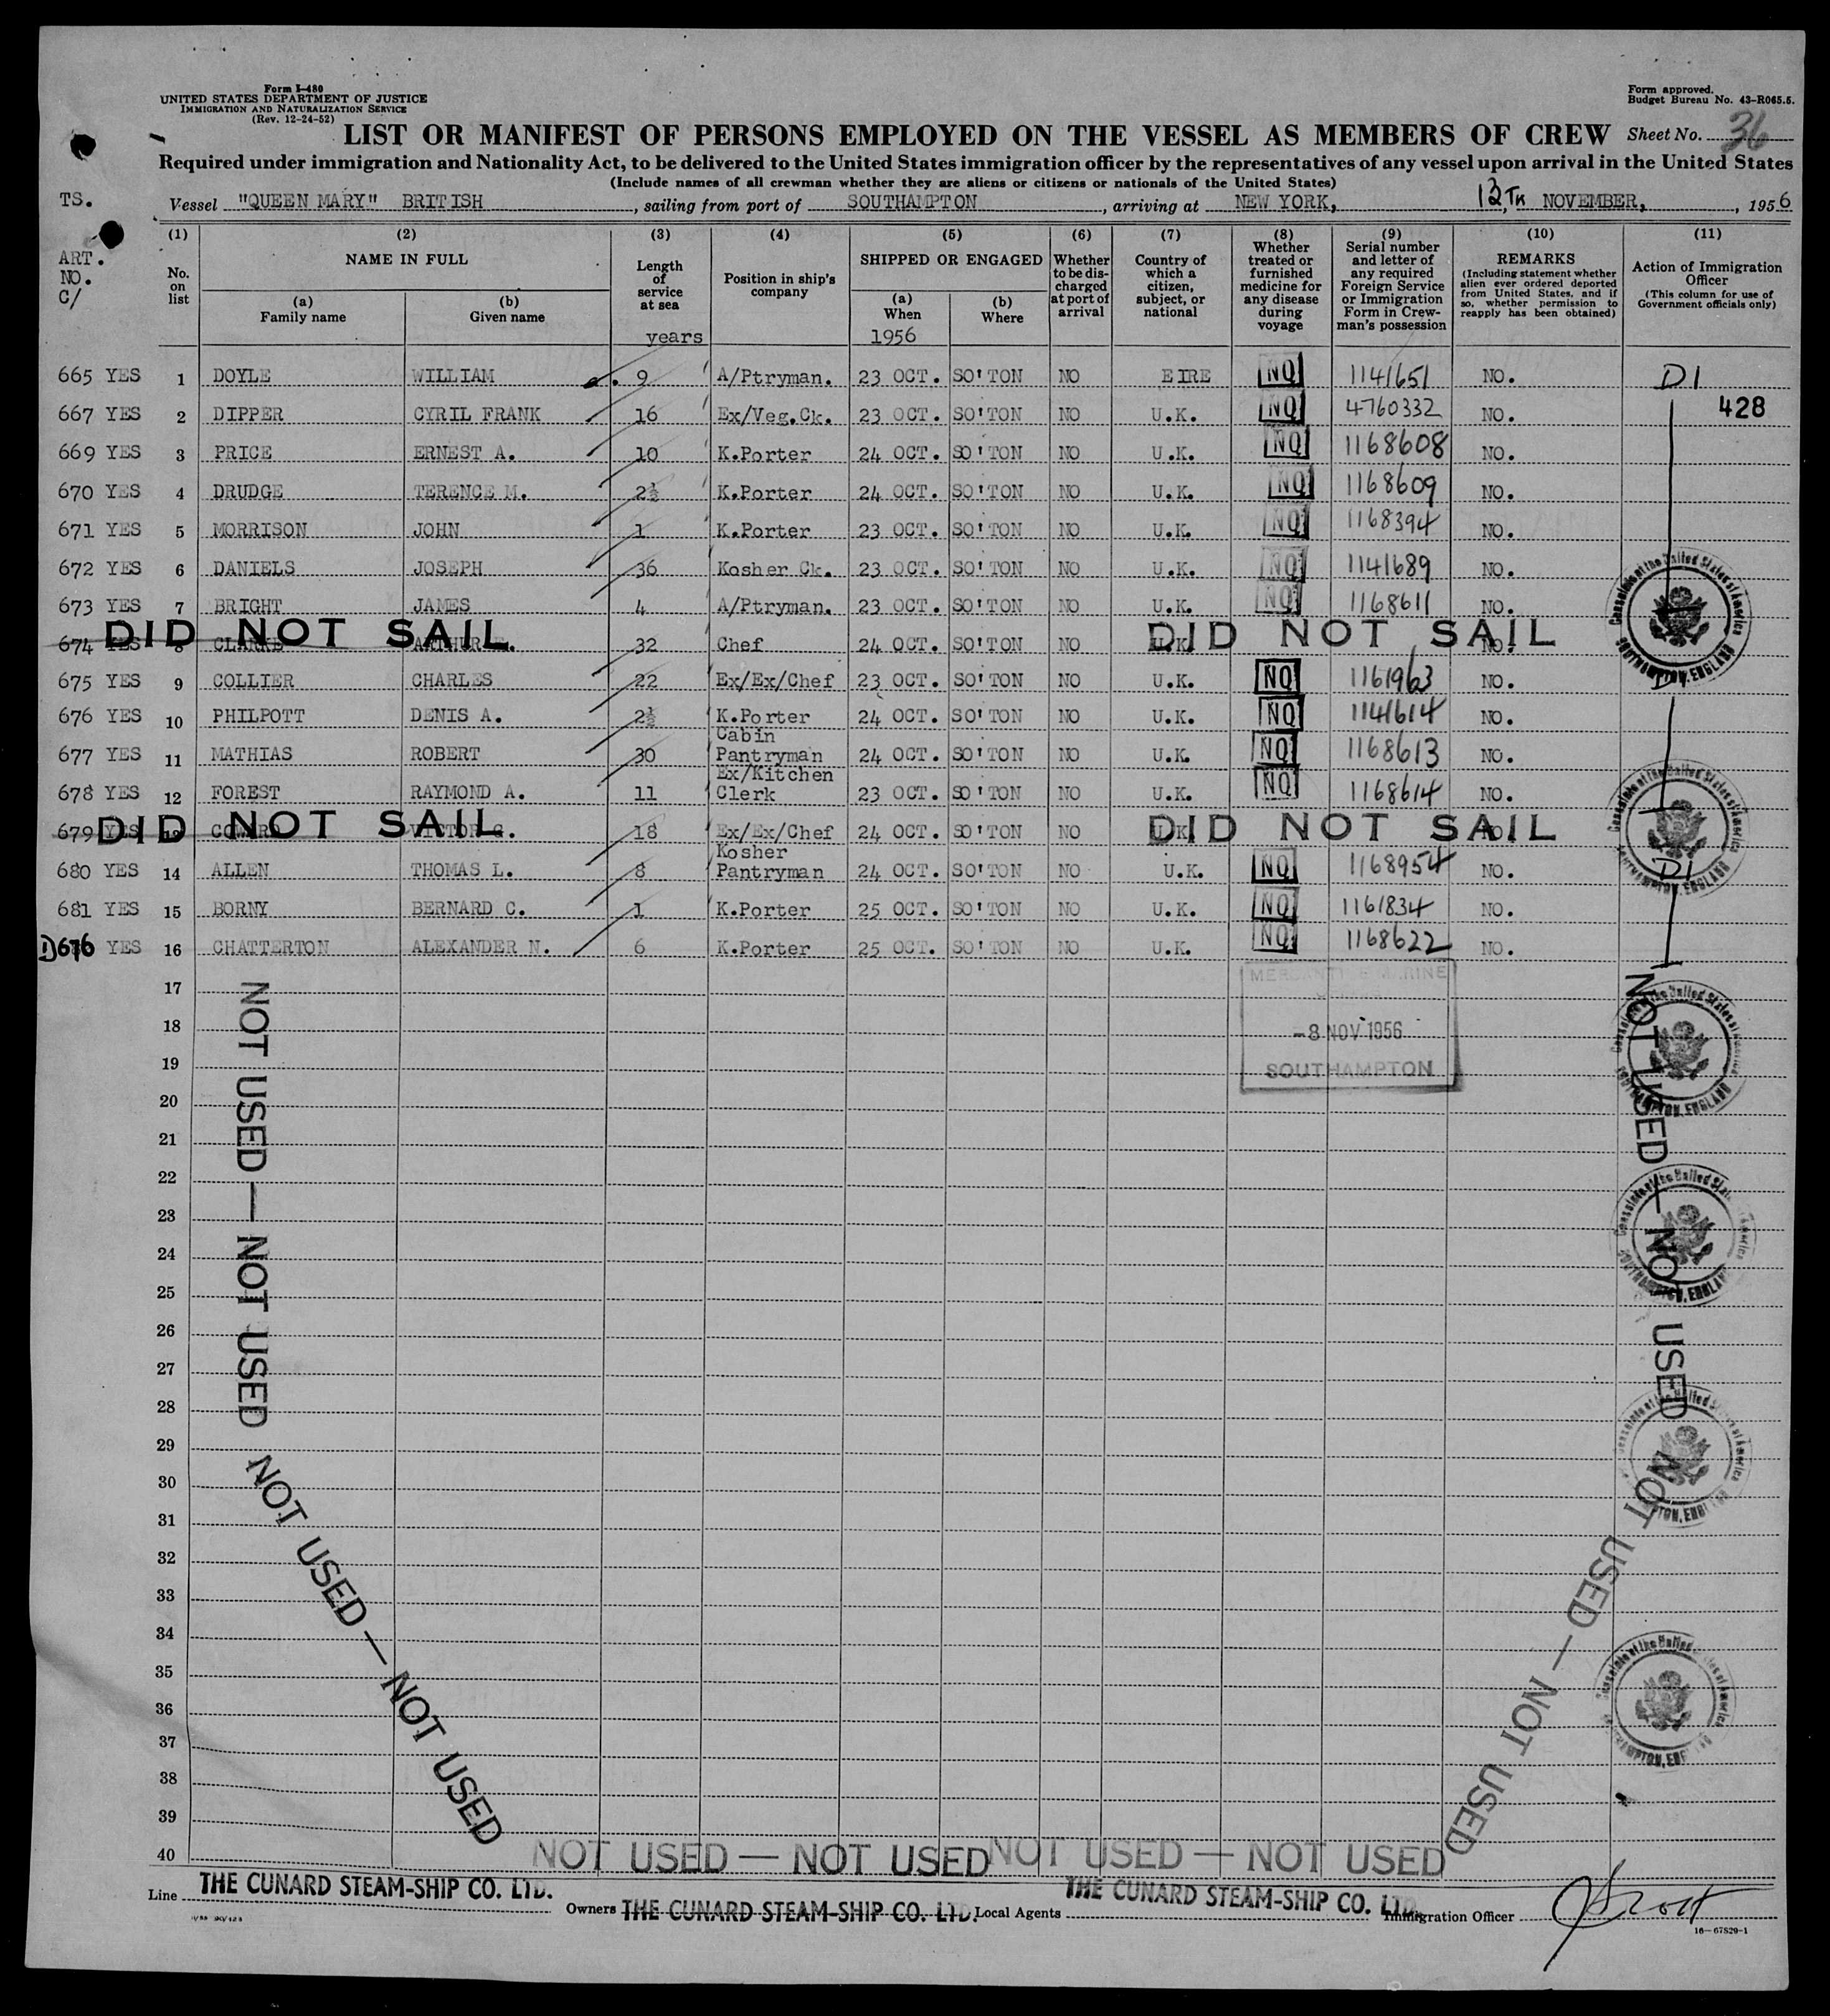 Form I-480
UNITED STATES DEPARTMENT OF JUSTICE
IMMIGRATION AND NATURALIZATION SERVICE
(Rev. 12-24-52)
Form approved.
Budget Bureau No. 43-R065.5.
LIST OR MANIFEST OF PERSONS EMPLOYED ON THE VESSEL AS MEMBERS OF CREW Sheet No. 36
Required under immigration and Nationality Act, to be delivered to the United States immigration officer by the representatives of any vessel upon arrival in the United States
(Include names of all crewman whether they are aliens or citizens or nationals of the United States)
TS. Vessel "QUEEN MARY" BRITISH, sailing from port of SOUTHAMPTON, arriving at NEW YORK, 13,TH NOVEMBER, 1956
ART. NO. C/
(1) No. on list
(2) NAME IN FULL (a) Family name (b) Given name
(3) Length of service at sea years
(4) Position in ship's company
(5) SHIPPED OR ENGAGED (a) When 1956 (b) Where
(6) Whether to be discharged at port of arrival
(7) Country of which a citizen, subject, or national
(8) Whether treated or furnished medicine for any disease during voyage
(9) Serial number and letter of any required Foreign Service or Immigration Form in Crewman's possession
(10) REMARKS (Including statement whether alien ever ordered deported from United States, and if so, whether permission to reapply has been obtained)
(11) Action of Immigration Officer (This column for use of Government officials only)
665 YES 1 DOYLE WILLIAM 9 A/Ptryman. 23 OCT. SO'TON NO EIRE NO 1141651 NO. D1
667 YES 2 DIPPER CYRIL FRANK 16 Ex/Veg.Ck. 23 OCT. SO'TON NO U.K. NO 4760332 NO. 428
669 YES 3 PRICE ERNEST A. 10 K.Porter 24 OCT. SO'TON NO U.K. NO 1168608 NO.
670 YES 4 DRUDGE TERENCE M. 2½ K.Porter 24 OCT. SO'TON NO U.K. NO 1168609 NO.
671 YES 5 MORRISON JOHN 1 K.Porter 23 OCT. SO'TON NO U.K. NO 1168394 NO.
672 YES 6 DANIELS JOSEPH 36 Kosher Ck. 23 OCT. SO'TON NO U.K. NO 1141689 NO.
673 YES 7 BRIGHT JAMES 4 A/Ptryman. 23 OCT. SO'TON NO U.K. NO 1168611 NO.
DID NOT SAIL DID NOT SAIL
674 YES 8 CLARKE ARTHUR 32 Chef 24 OCT. SO'TON NO U.K. NO.
675 YES 9 COLLIER CHARLES 22 Ex/Ex/Chef 23 OCT. SO'TON NO U.K. NO 1161963 NO. D1
676 YES 10 PHILPOTT DENIS A. 2½ K.Porter 24 OCT. SO'TON NO U.K. NO 1141614 NO.
677 YES 11 MATHIAS ROBERT 30 Cabin Pantryman 24 OCT. SO'TON NO U.K. NO 1168613 NO.
678 YES 12 FOREST RAYMOND A. 11 Ex/Kitchen Clerk 23 OCT. SO'TON NO U.K. NO 1168614 NO.
DID NOT SAIL DID NOT SAIL
679 YES 13 VICTOR G. 18 Ex/Ex/Chef 24 OCT. SO'TON NO U.K. NO.
680 YES 14 ALLEN THOMAS L. 8 Kosher Pantryman 24 OCT. SO'TON NO U.K. NO 1168954 NO. D1
681 YES 15 BORNY BERNARD C. 1 K.Porter 25 OCT. SO'TON NO U.K. NO 1161834 NO.
676 YES 16 CHATTERTON ALEXANDER N. 6 K.Porter 25 OCT. SO'TON NO U.K. NO 1168622 NO.
17
18
19
20
21
22
23
24
25
26
27
28
29
30
31
32
33
34
35
36
37
38
39
40
MERCANTILE MARINE
-8 NOV 1956
SOUTHAMPTON
NOT USED — NOT USED
NOT USED — NOT USED
NOT USED — NOT USED
NOT USED — NOT USED
NOT USED — NOT USED
NOT USED — NOT USED
Consulate of the United States of America
SOUTHAMPTON, ENGLAND
Consulate of the United States of America
SOUTHAMPTON, ENGLAND
Consulate of the United States of America
SOUTHAMPTON, ENGLAND
Consulate of the United States of America
SOUTHAMPTON, ENGLAND
Consulate of the United States of America
SOUTHAMPTON, ENGLAND
Consulate of the United States of America
SOUTHAMPTON, ENGLAND
Line THE CUNARD STEAM-SHIP CO. LTD. Owners THE CUNARD STEAM-SHIP CO. LTD. Local Agents THE CUNARD STEAM-SHIP CO. LTD. Immigration Officer
16—67829-1